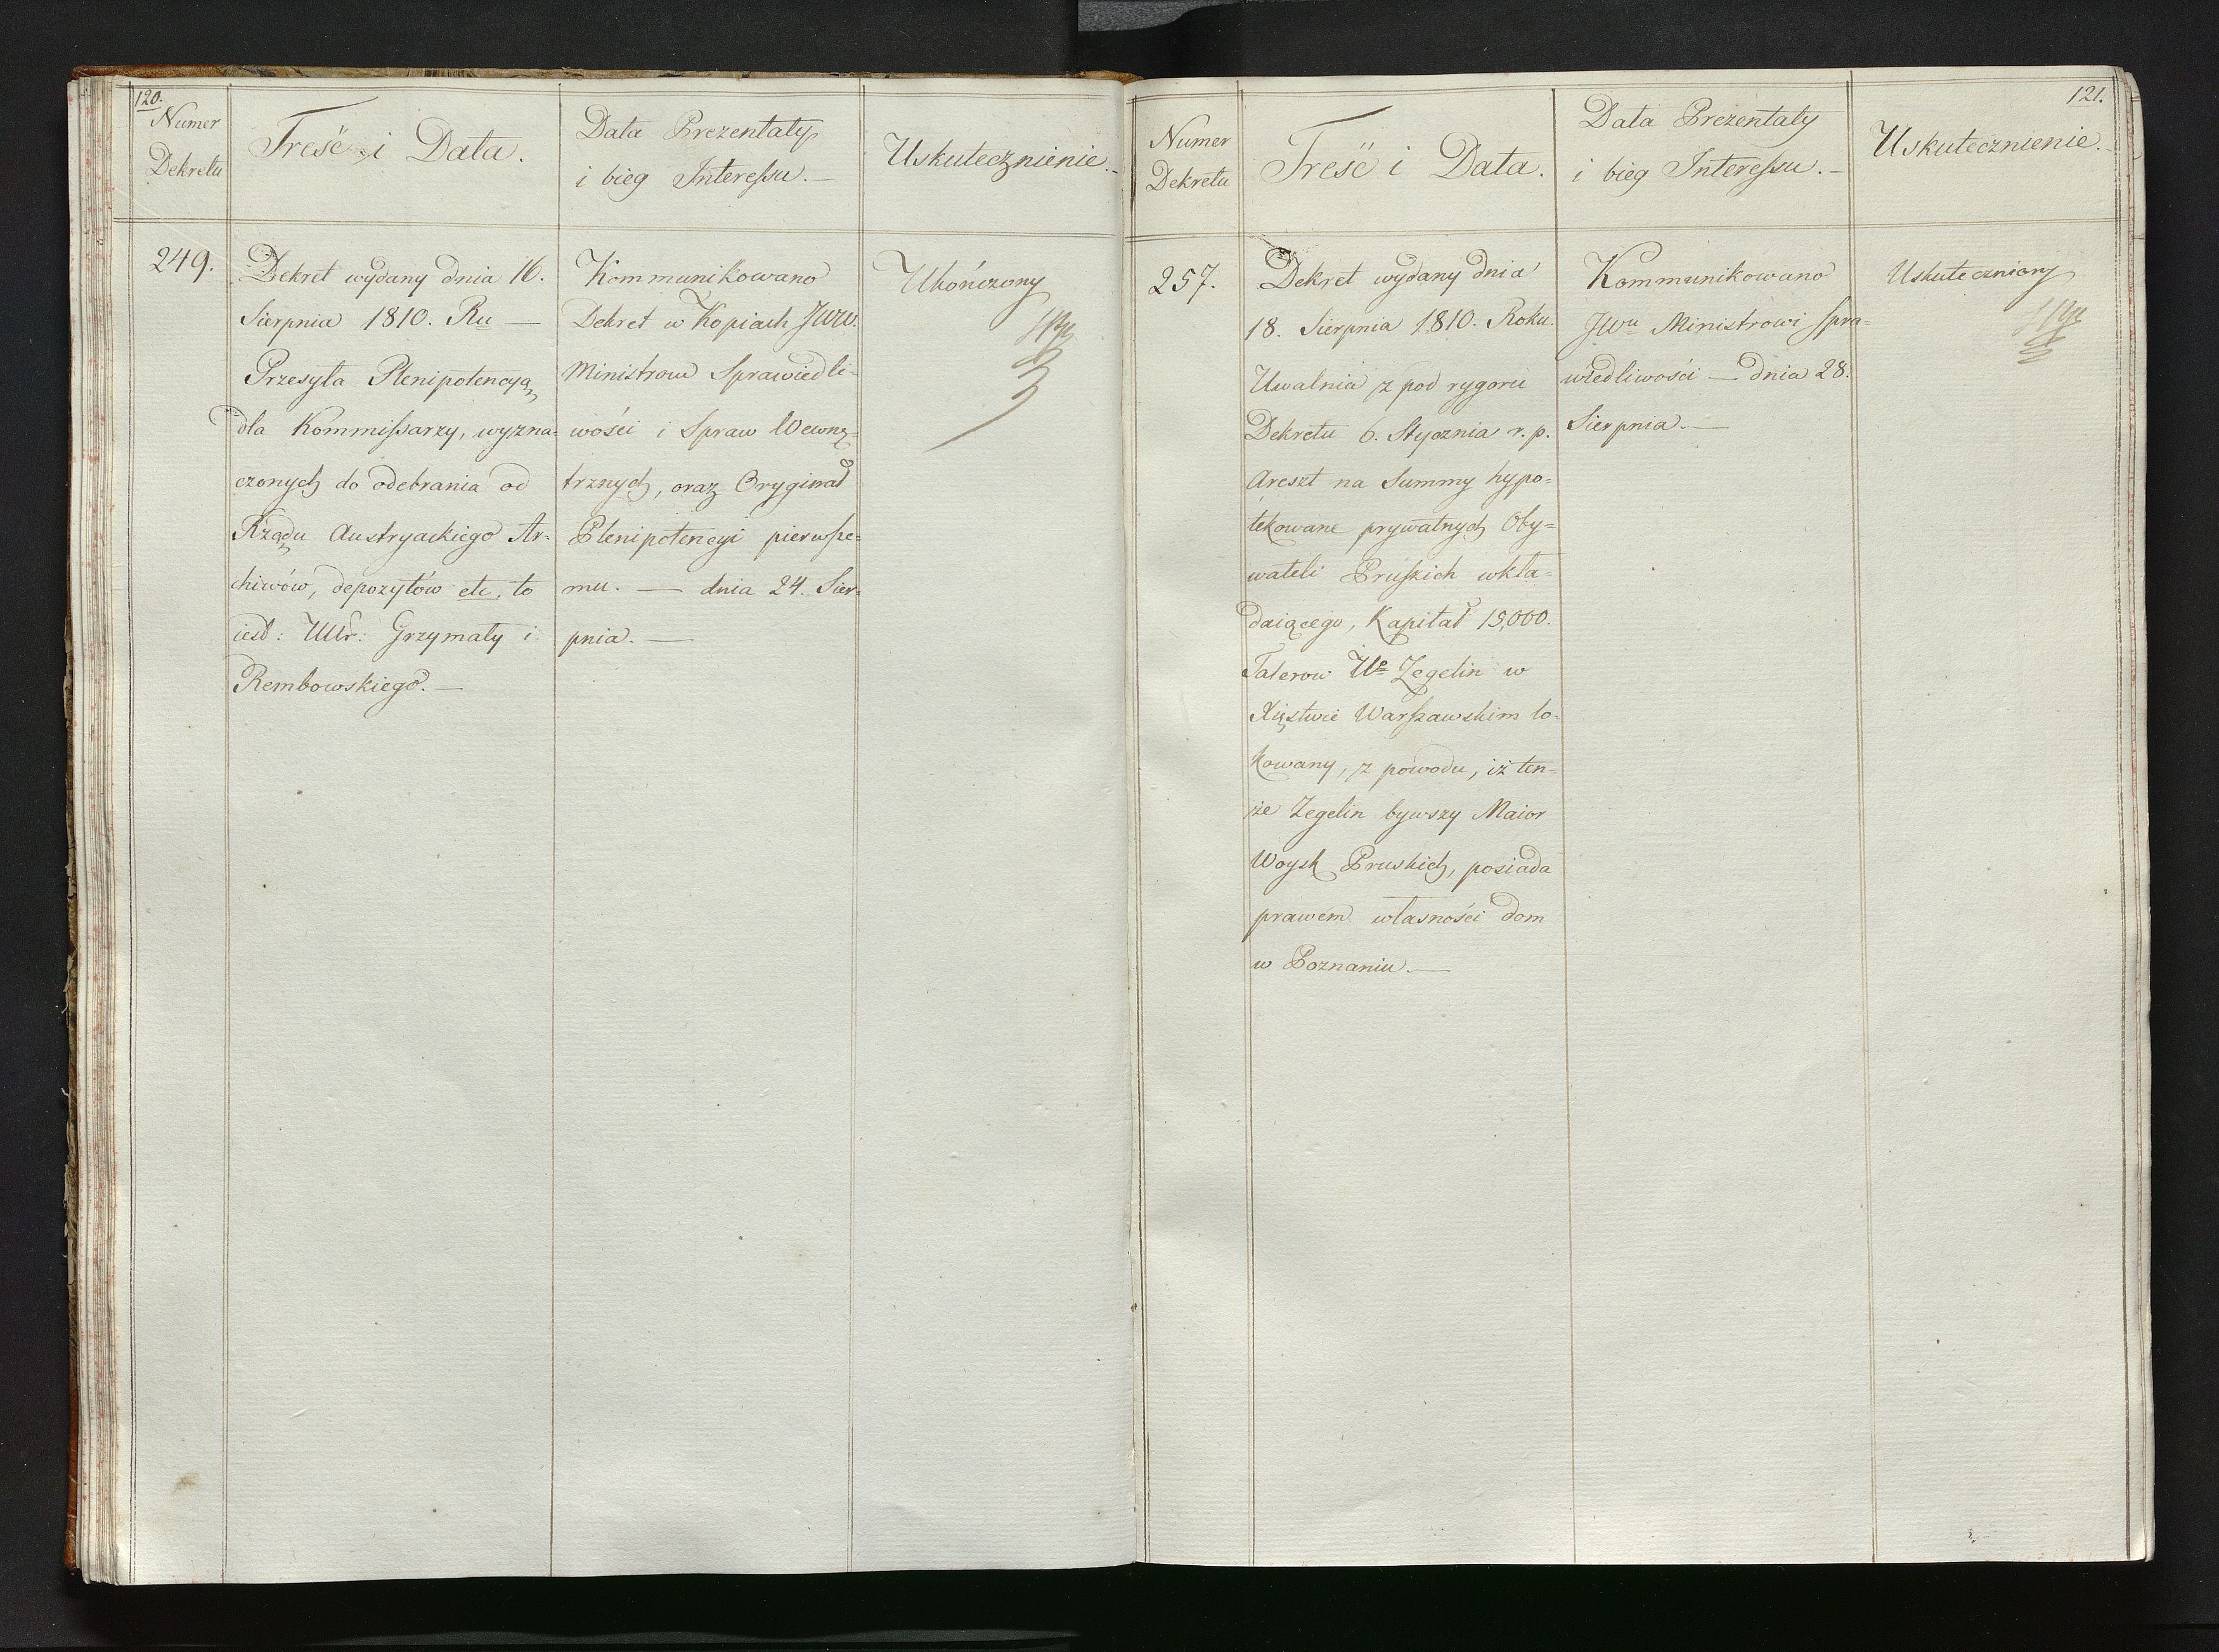 120.
Numer
Dekretu
Treść i Data.
Data Prezentaty
i bieg Interessu. —
Uskutecznienie.
249.
Dekret wydany dnia 16.
Sierpnia 1810. Ru —
Przesyła Plenipotencyą
dla Kommissarzy, wyzna=
czonych do odebrania od
Rządu Austryackiego Ar=
chiwów, depozytów etc, to
iest: UUr: Grzymały i
Rembowskiego. —
Kommunikowano
Dekret w Kopiach JWW.
Ministrom Sprawiedli=
wości i Spraw Wewnę=
trznych, oraz Oryginał
Plenipotencyi pierwsze=
mu. — dnia 24. Sier=
pnia. —
Ukończony
121.
Numer
Dekretu
Treść i Data.
Data Prezentaty
i bieg Interessu. —
Uskutecznienie.
257.
Dekret wydany dnia
18. Sierpnia 1810. Roku.
Uwalnia z pod rygoru
Dekretu 6. Stycznia r. p.
Areszt na Summy hypo=
tekowane prywatnych Oby=
wateli Pruskich wkła=
daiącego, Kapitał 15,000.
Talerow Ue Zegelin w
Xięstwie Warszawskim lo=
kowany, z powodu, iż ten=
że Zegelin bywszy Maior
Woysk Pruskich, posiada
prawem własności dom
w Poznaniu. —
Kommunikowano
JWu Ministrowi Spra=
wiedliwości — dnia 28.
Sierpnia. —
Uskuteczniony